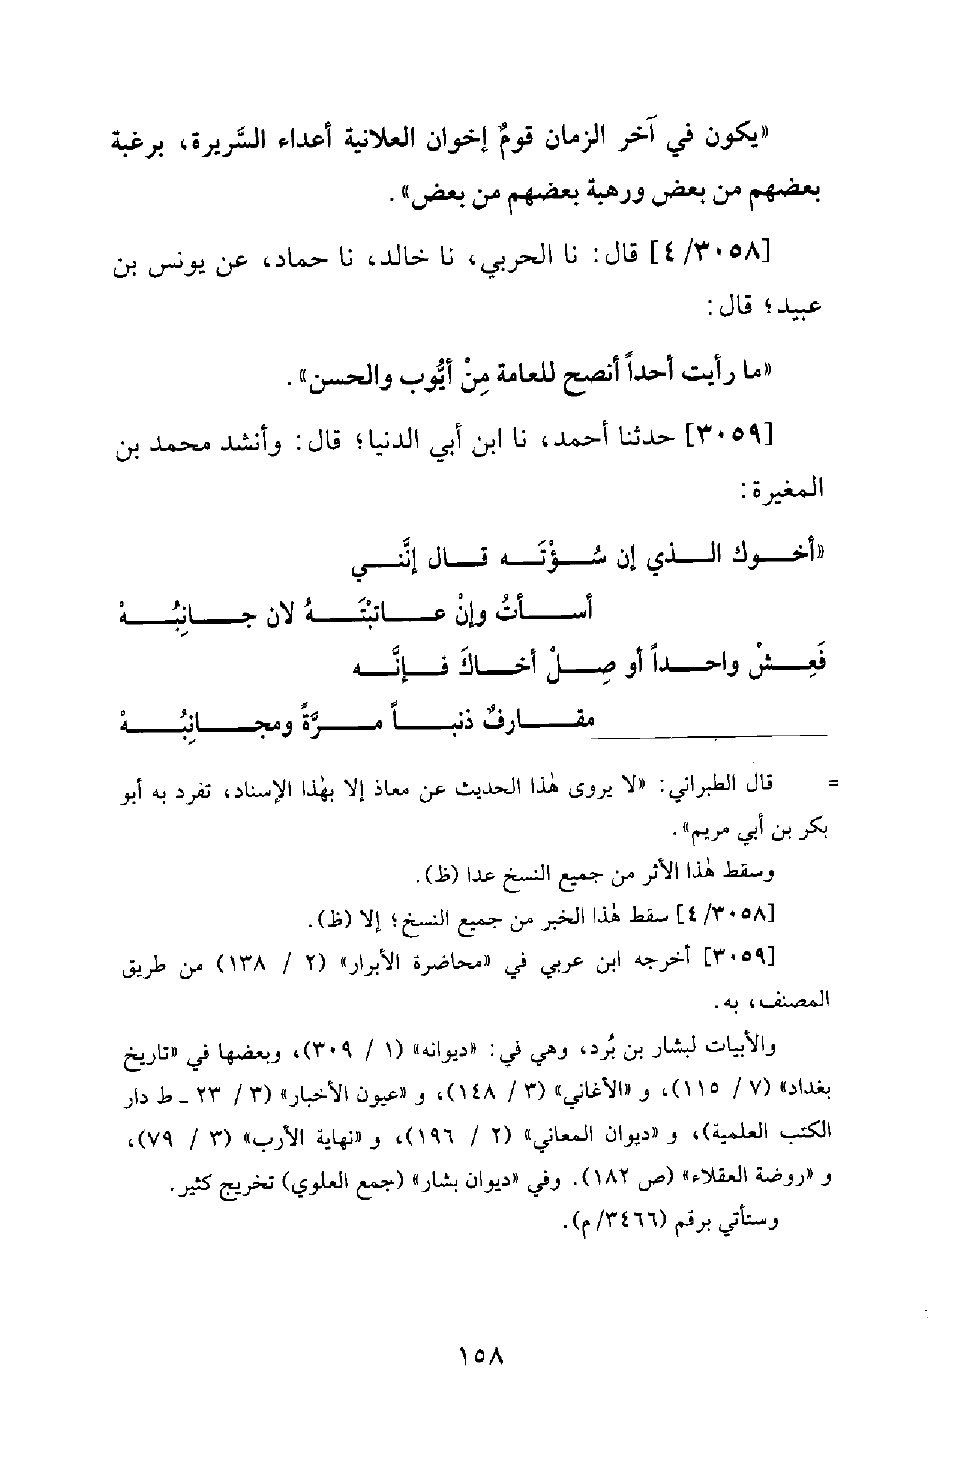 «يكون في آخر الزمان قومٌ إخوان العلانية أعداء السَّريرة، برغبة
بعضهم من بعض ورهبة بعضهم من بعض».
[٣٠٥٨/ ٤] قال: نا الحربي، نا خالد، نا حماد، عن يونس بن
عبيد؛ قال:
«ما رأيت أحداً أنصح للعامة مِنْ أيُّوب والحسن».
[٣٠٥٩] حدثنا أحمد، نا ابن أبي الدنيا؛ قال: وأنشد محمد بن
المغيرة:
«أخــوك الــذي إن سُــؤْتَــه قــال إنَّنــي
أســأتُ وإنْ عــاتبْتَــهُ لان جــانِبُــهْ
فَعِــشْ واحــداً أو صِــلْ أخــاكَ فــإنَّــه
مقــارفٌ ذنبــاً مــرَّةً ومجــانِبُــهْ
= قال الطبراني: «لا يروى هٰذا الحديث عن معاذ إلا بهٰذا الإسناد، تفرد به أبو
بكر بن أبي مريم».
وسقط هٰذا الأثر من جميع النسخ عدا (ظ).
[٣٠٥٨/ ٤] سقط هٰذا الخبر من جميع النسخ؛ إلا (ظ).
[٣٠٥٩] أخرجه ابن عربي في «محاضرة الأبرار» (٢ / ١٣٨) من طريق
المصنف، به.
والأبيات لبشار بن بُرد، وهي في: «ديوانه» (١ / ٣٠٩)، وبعضها في «تاريخ
بغداد» (٧ / ١١٥)، و «الأغاني» (٣ / ١٤٨)، و «عيون الأخبار» (٣ / ٢٣ ـ ط دار
الكتب العلمية)، و «ديوان المعاني» (٢ / ١٩٦)، و «نهاية الأرب» (٣ / ٧٩)،
و «روضة العقلاء» (ص ١٨٢). وفي «ديوان بشار» (جمع العلوي) تخريج كثير.
وستأتي برقم (٣٤٦٦/ م).
١٥٨